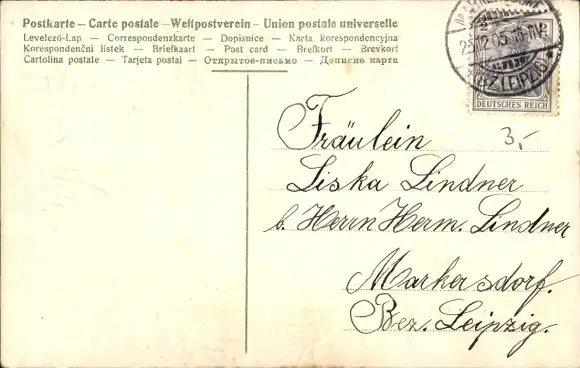 Postkarte – Carte postale – Weltpostverein – Union postale universelle
Levelező-Lap – Correspondenzkarte – Dopisnice – Karta korespondencyjna
Korespondenční lístek – Briefkaart – Post card – Brefkort – Brevkort
Cartolina postale – Tarjeta postal – Открытое письмо – Дописна карта
25.12.05
BZ. LEIPZIG *
DEUTSCHES REICH
3,-
Fräulein
Liska Lindner
b. Herrn Herm. Lindner
Markersdorf.
Bez. Leipzig.